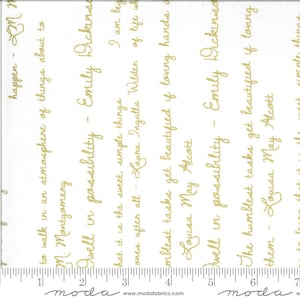 happen - LM M
to walk in an atmosphere of things about to
M Montgomery
Dwell in possibility - Emily Dickinson
I am beg
that it is the sweet, simple things of life wh
ones after all - Laura Ingalls Wilder
humblest tasks get beautified if loving hands d
Louisa May Alcott
Dwell in possibility - Emily Dickinson
The humblest tasks get beautified if loving
them - Louisa May Alcott
1 2 3 4 5 6 7
moda www.modafabrics.com moda